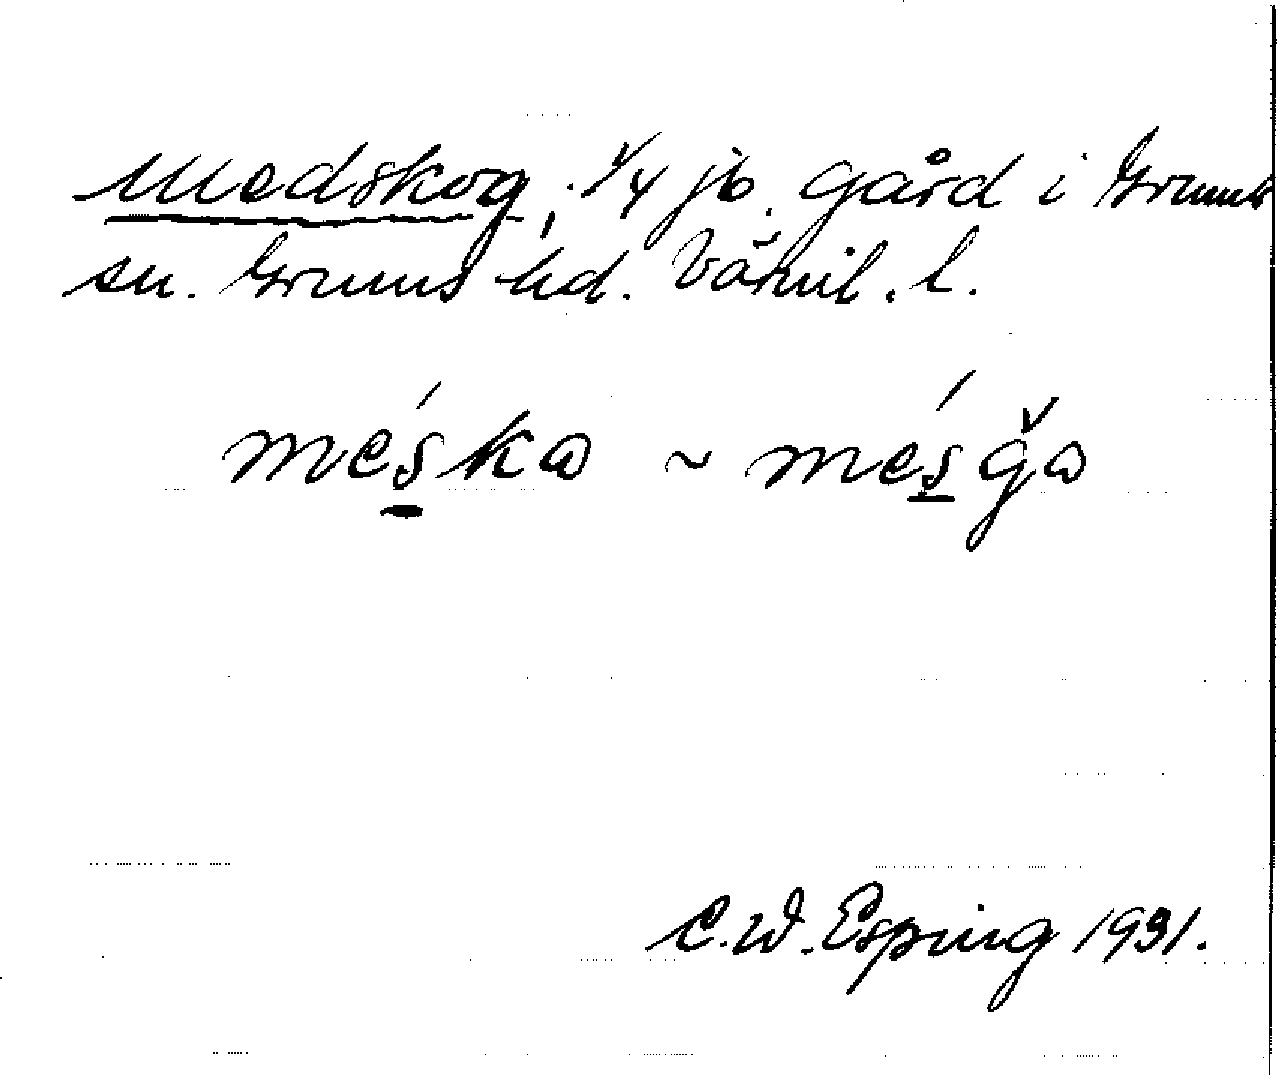 Medskog, 1/4 jb. gård i Grums
sn. Grums hd. Värml. l.
méska ~ mésğa
C.W. Esping 1931.